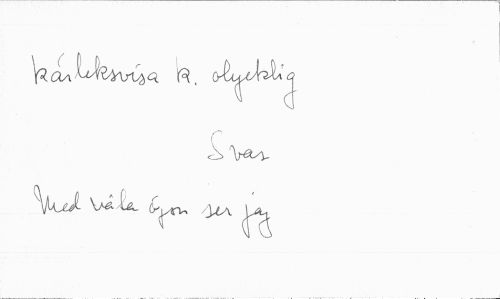 kärleksvisa k. olycklig
Svar
Med våta ögon ser jag